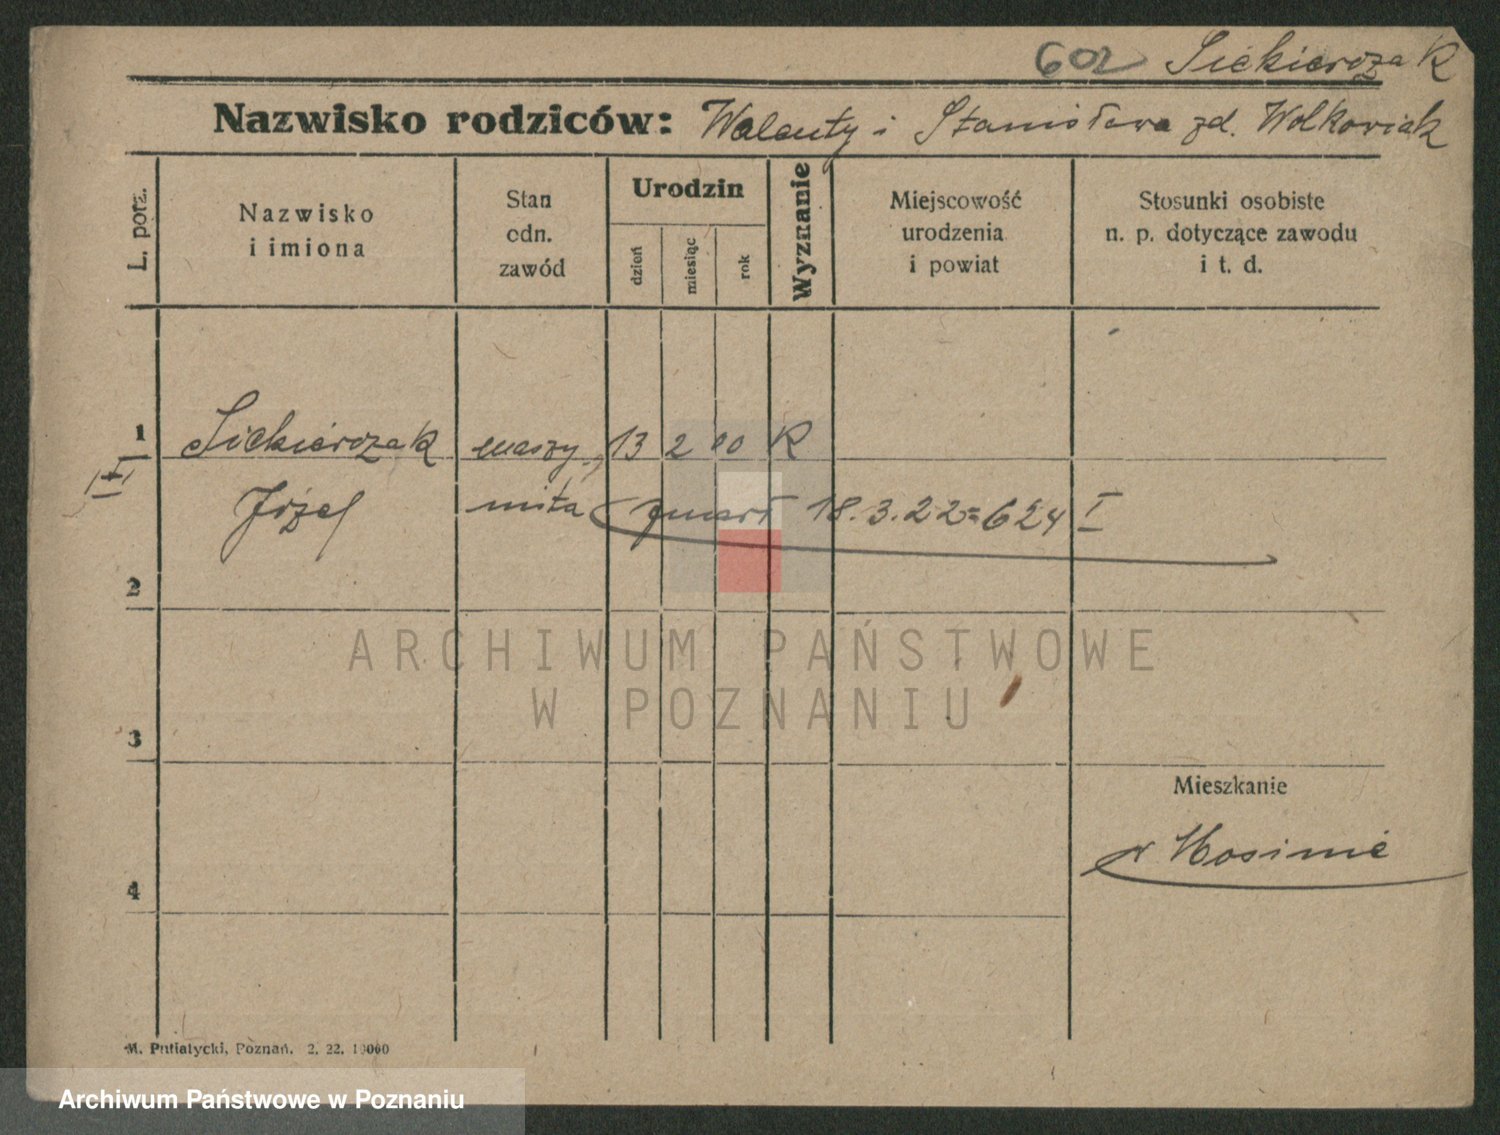 602 Siekierczak
Nazwisko rodziców: Walenty i Stanisława zd. Wolkowiak
L. porz.
Nazwisko
i imiona
Stan
odn.
zawód
Urodzin
dzień
miesiąc
rok
Wyznanie
Miejscowość
urodzenia
i powiat
Stosunki osobiste
n. p. dotyczące zawodu
i t. d.
1 Siekierczak maszy- 13 2 00 K
II
Józef nista zmarł 18.3.22=624 I
2
ARCHIWUM PAŃSTWOWE
W POZNANIU
3
Mieszkanie
w Mosinie
4
M. Putiatycki, Poznań. 2. 22. 10000
Archiwum Państwowe w Poznaniu